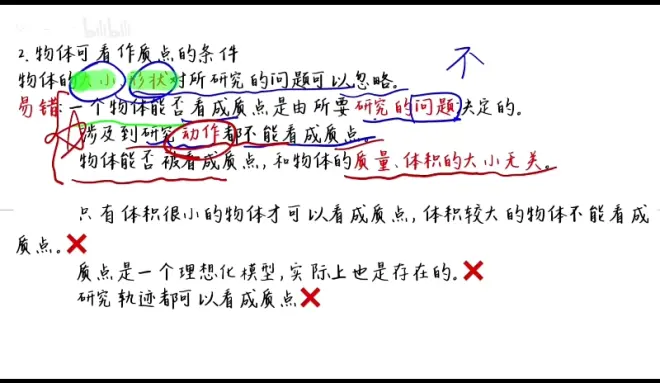 bilibili
2.物体可看作质点的条件
不
物体的大小、形状对所研究的问题可以忽略。
易错:一个物体能否看成质点是由所要研究的问题决定的。
涉及到研究动作都不能看成质点。
物体能否被看成质点,和物体的质量、体积的大小无关。
只有体积很小的物体才可以看成质点,体积较大的物体不能看成
质点。❌
质点是一个理想化模型,实际上也是存在的。❌
研究轨迹都可以看成质点❌